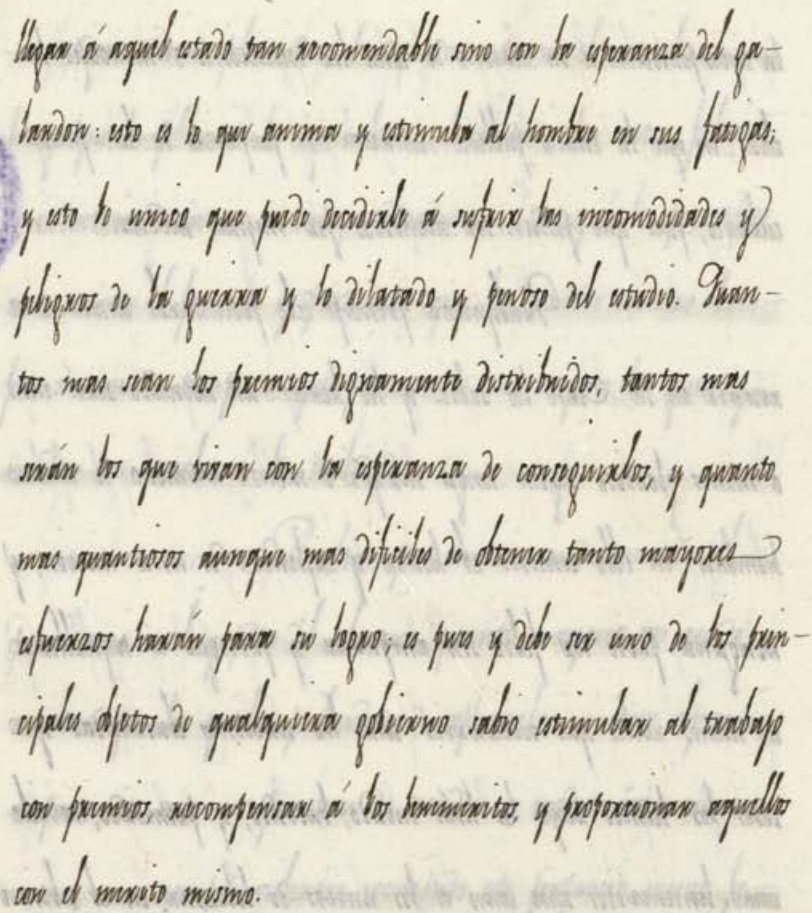 llegar á aquel estado tan recomendable sino con la esperanza del ga-
lardon: esto es lo que anima y estimula al hombre en sus fatigas;
y esto lo unico que puede decidirle á sufrir las incomodidades y
peligros de la guerra y lo dilatado y penoso del estudio. Quan-
tos mas sean los premios dignamente distribuidos, tantos mas
serán los que vivan con la esperanza de conseguirlos, y quanto
mas quantiosos aunque mas dificiles de obtener tanto mayores
esfuerzos harán para su logro; es pues y debe ser uno de los prin-
cipales objetos de qualquiera gobierno sabio estimular al trabajo
con premios, recompensar á los benemeritos, y proporcionar aquellos
con el merito mismo.